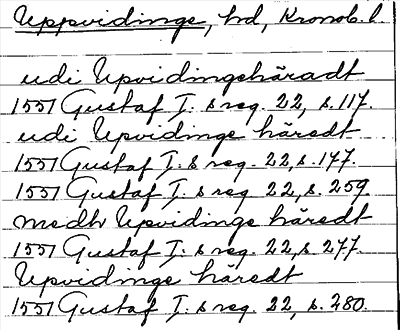 Uppvidinge, hd, Kronob. l.
udi Upvidingehäradt
1551 Gustaf I:s reg. 22, s. 117.
udi Upvidinge häredt
1551 Gustaf I:s reg. 22, s. 147.
1551 Gustaf I:s reg. 22, s. 259
medh Upvidinge häredt
1551 Gustaf I:s reg. 22, s. 277.
Upvidinge häredt
1551 Gustaf I:s reg. 22, s. 280.